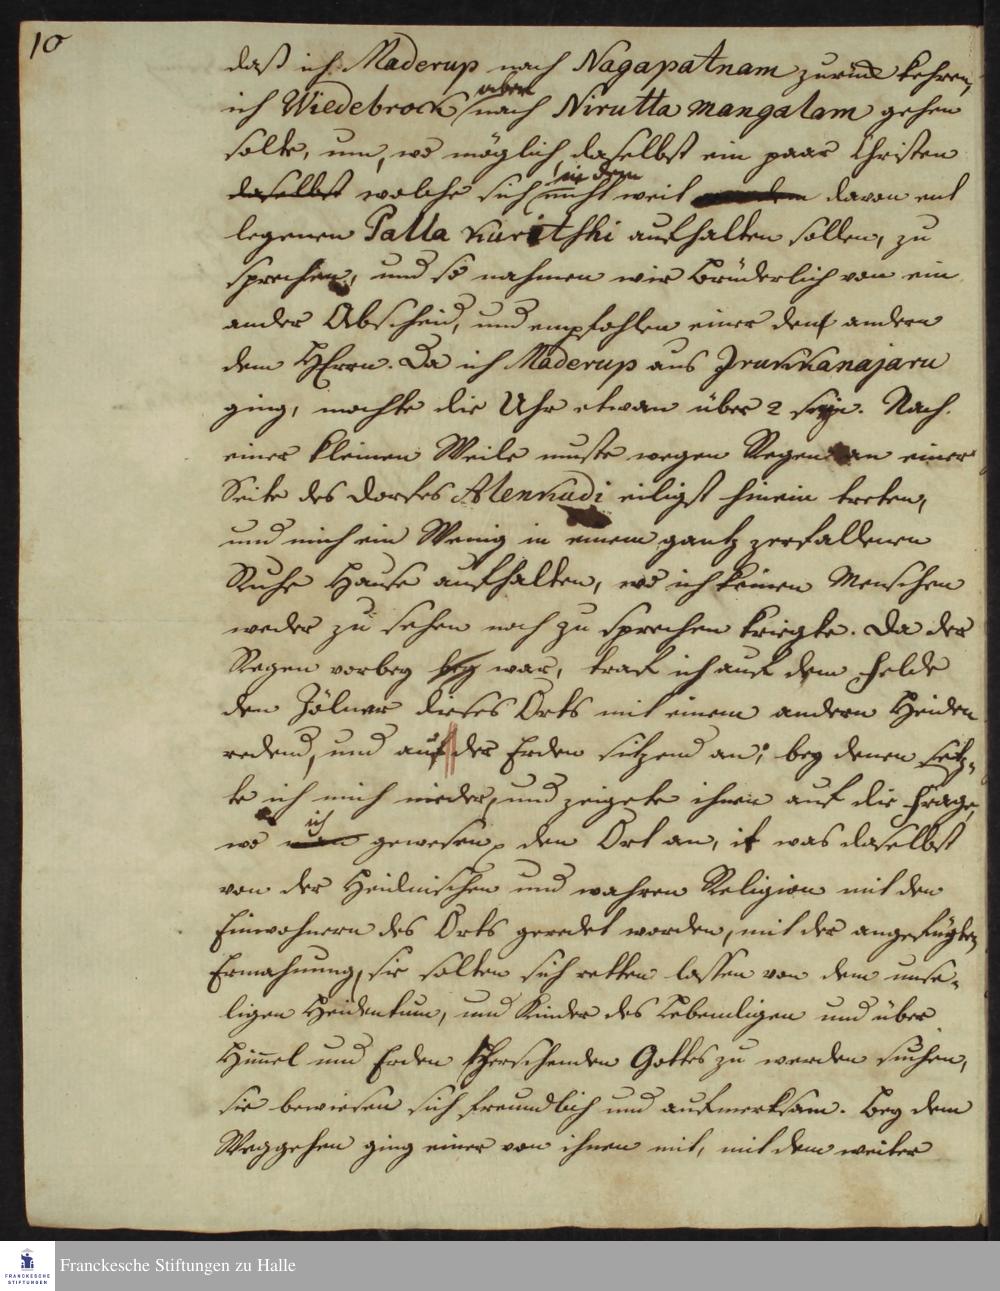 10
daß ich Maderup nach Nagapatnam zurück kehren,
ich Wiedebrock aber nach Nirutta mangalam gehen
solte, um, wo möglich, daselbst ein paar Christen
daselbst welche sich in dem nicht weit davon ent
legenen Palla Kuritshi aufhalten sollen, zu
sprechen, und so nahmen wir brüderlich von ein
ander Abscheid, und empfohlen einer den andern
dem HErrn. Da ich Maderup aus Irukkanajaru
ging, mochte die Uhr etwan über 2 seyn. Nach
einer kleinen Weile muste wegen Regen an einer
Seite des Dorfes Alenkudi eiligst hinein treten,
und mich ein Wenig in einem gantz zerfallenen
Ruhe Hause aufhalten, wo ich keinen Menschen
weder zu sehen noch zu sprechen kriegte. Da der
Regen vorbey bey war, traf ich auf dem Felde
den Zölner dieses Orts mit einem andern Heiden
redend, und auf der Erden sitzend an; bey denen setz-
te ich mich nieder, und zeigete ihnen auf die Frage,
wo ich gewesen, den Ort an, it was daselbst
von der Heidnischen und wahren Religion mit den
Einwohnern des Orts geredet worden, mit der angefügten
Ermahnung, sie solten sich retten lassen von dem unse-
ligen Heidentum, und Kinder des Lebendigen und über
Himel und Erden Herschenden Gottes zu werden suchen,
sie bewiesen sich freundlich und aufmerksam. Bey dem
Weggehen ging einer von ihnen mit, mit dem weiter
FRANCKESCHE
STIFTUNGEN
Franckesche Stiftungen zu Halle